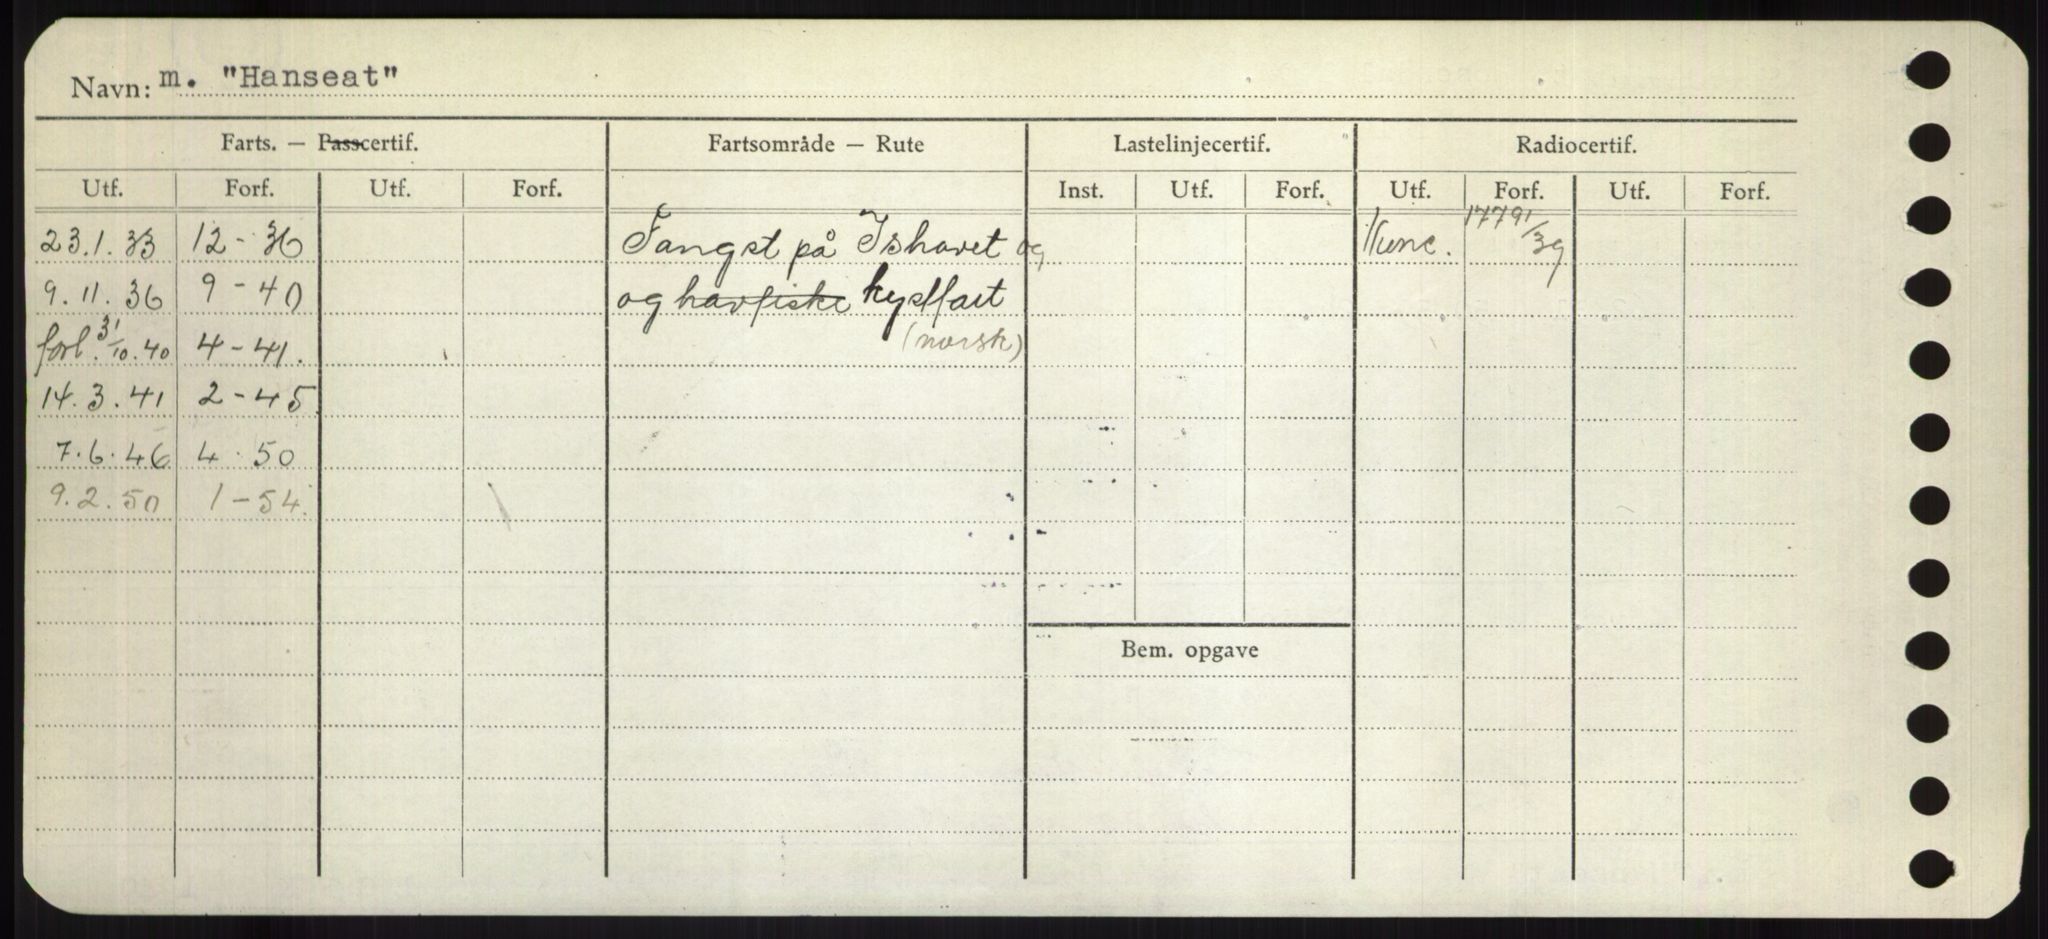 Navn: m. "Hanseat"
Farts. — Passcertif. Fartsområde — Rute Lastelinjecertif. Radiocertif.
Utf. Forf. Utf. Forf. Inst. Utf. Forf. Utf. Forf. Utf. Forf.
23.1.33 12-36 Fangst på Ishavet og
9.11.36 9-40 og havfiske kystfart
forl. 31/10.40 4-41. (norsk)
14.3.41 2-45
7.6.46 4.50
9.2.50 1-54.
Bem. opgave